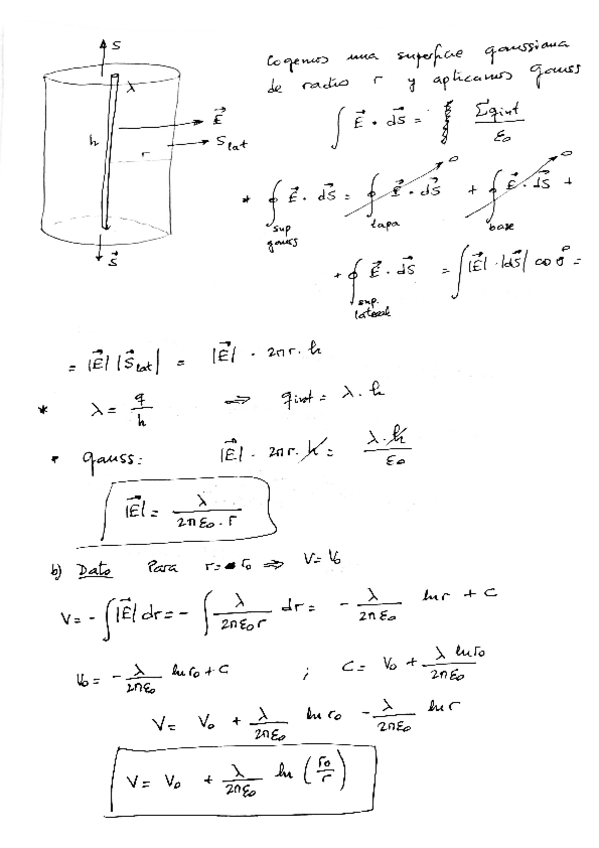 S⃗
λ
Cogemos una superficie gaussiana
de radio r y aplicamos gauss
h
E⃗
r
S lat
S⃗
∫ E⃗ · dS⃗ = Σqint / ε₀
* ∮ sup gauss E⃗ · dS⃗ = ∮ tapa E⃗ · dS⃗ → 0 + ∮ base E⃗ · dS⃗ → 0 +
+ ∮ sup. lateral E⃗ · dS⃗ = ∫ |E⃗| · |dS⃗| cos 0° =
= |E⃗| |S⃗lat| = |E⃗| · 2πr · h
* λ = q / h ⇒ qint = λ · h
• gauss: |E⃗| · 2πr · h = λ · h / ε₀
|E⃗| = λ / 2πε₀ · r
b) Dato Para r = r₀ ⇒ V = V₀
V = - ∫ |E⃗| dr = - ∫ λ / 2πε₀r dr = - λ / 2πε₀ ln r + C
V₀ = - λ / 2πε₀ ln r₀ + C ; C = V₀ + λ ln r₀ / 2πε₀
V = V₀ + λ / 2πε₀ ln r₀ - λ / 2πε₀ ln r
V = V₀ + λ / 2πε₀ ln (r₀ / r)